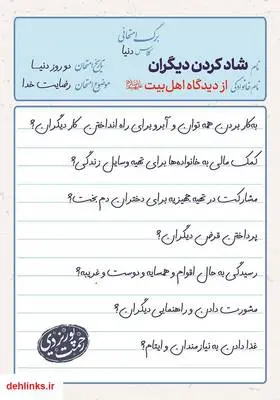 برگ امتحانی
کلاس دنیا
نام شاد کردن دیگران
تاریخ امتحان دو روز دنیا
نام خانوادگی از دیدگاه اهل‌بیت
موضوع امتحان رضایت خدا
به‌کار بردن همه توان و آبرو برای راه انداختن کار دیگران؟
کمک مالی به خانواده‌ها برای تهیه وسایل زندگی؟
مشارکت در تهیه جهیزیه برای دختران دم بخت؟
پرداختن قرض دیگران؟
رسیدگی به حال اقوام و همسایه و دوست و غریبه؟
مشورت دادن و راهنمایی دیگران؟
غذا دادن به نیازمندان و ایتام؟
حجت پوریزدی
dehlinks.ir